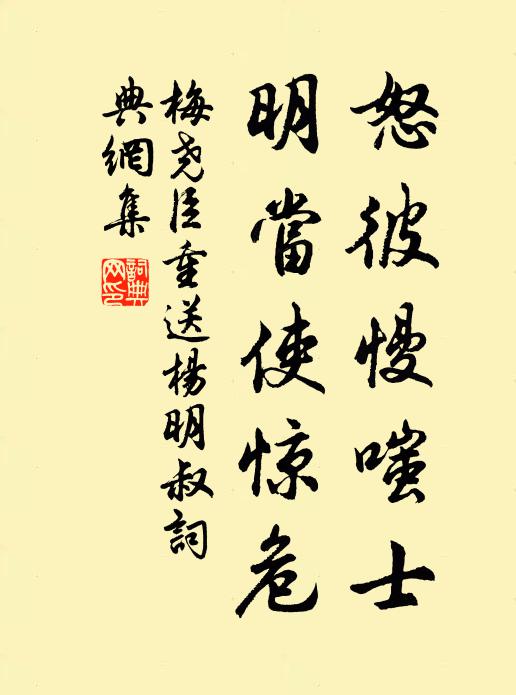 怒彼慢嗤士
明當使惊危
梅尧臣重送楊明叔詞
典網集
詞典
网印